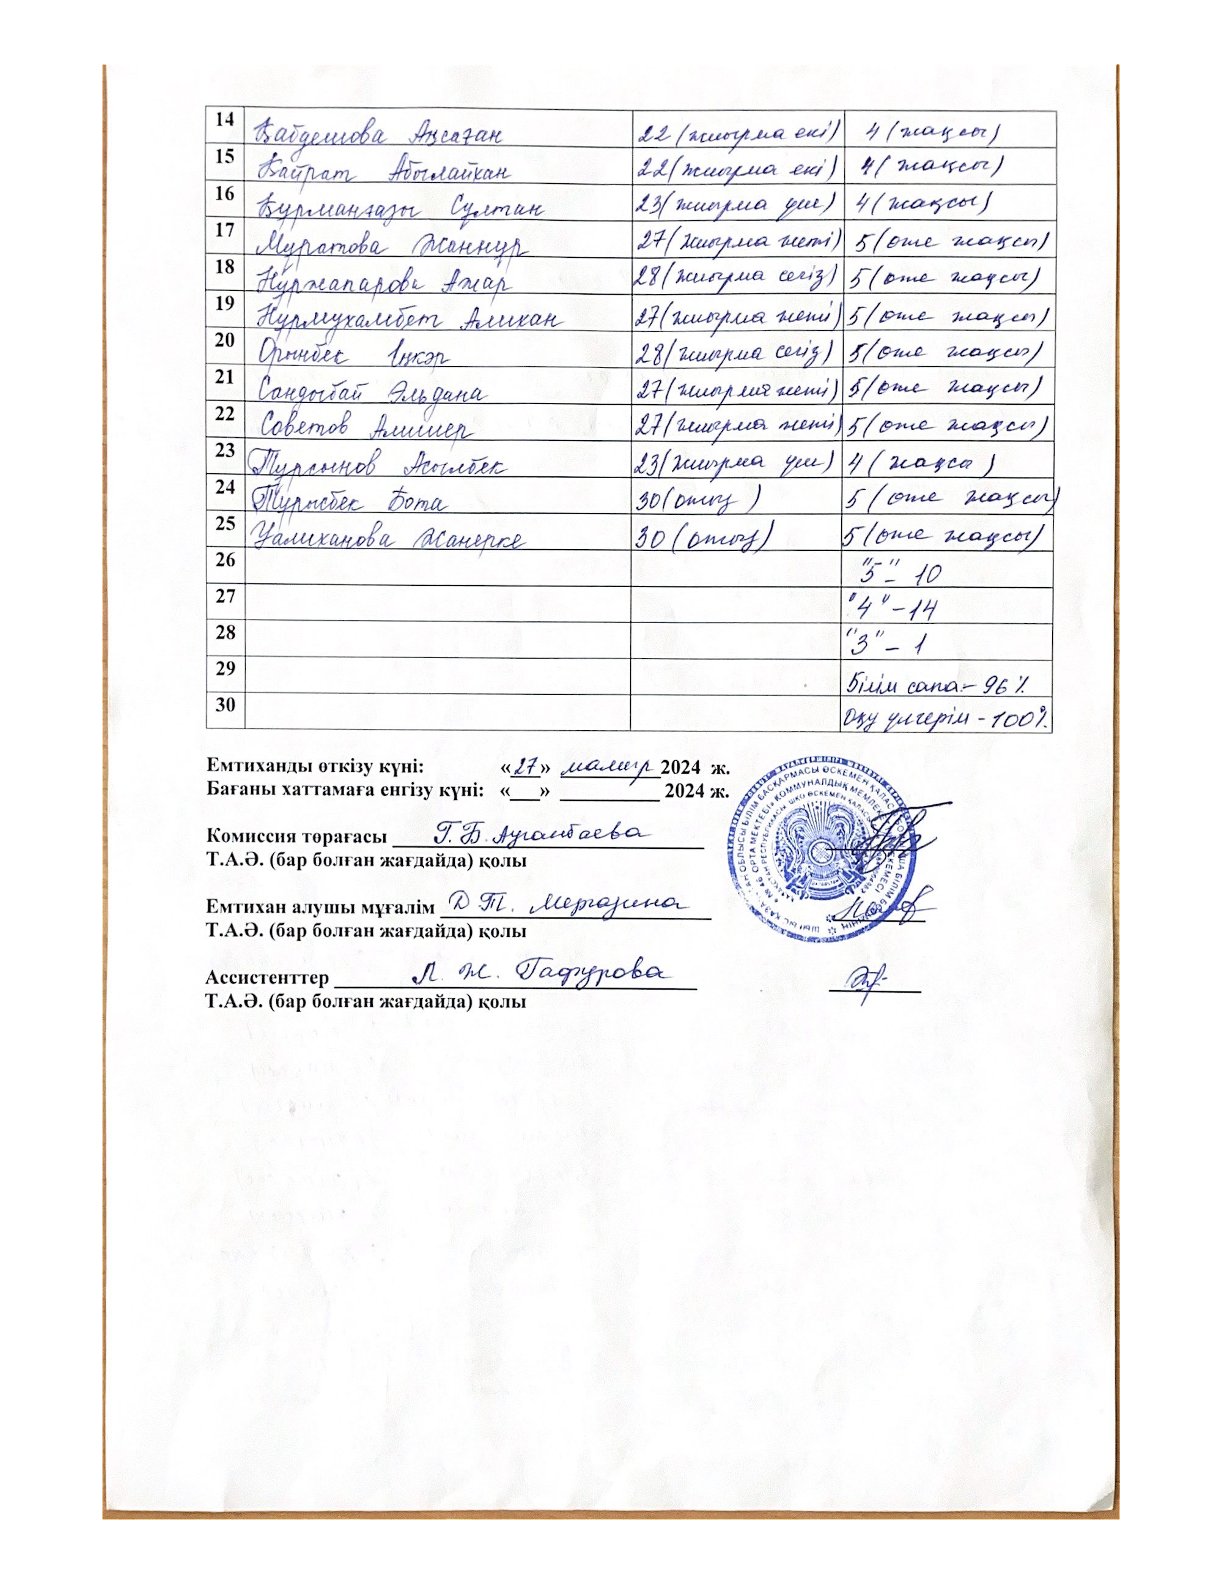 14 Қабдешова Ақсаған 22 (жиырма екі) 4 (жақсы)
15 Қайрат Абылайхан 22 (жиырма екі) 4 (жақсы)
16 Құрманғазы Сұлтан 23 (жиырма үш) 4 (жақсы)
17 Муратова Жаннұр 27 (жиырма жеті) 5 (өте жақсы)
18 Нұржапарова Ажар 28 (жиырма сегіз) 5 (өте жақсы)
19 Нұрмұхамбет Алихан 27 (жиырма жеті) 5 (өте жақсы)
20 Орынбек Іңкәр 28 (жиырма сегіз) 5 (өте жақсы)
21 Сандыбай Эльдана 27 (жиырма жеті) 5 (өте жақсы)
22 Советов Алишер 27 (жиырма жеті) 5 (өте жақсы)
23 Тұрсынов Асылбек 23 (жиырма үш) 4 (жақсы)
24 Тұрысбек Бота 30 (отыз) 5 (өте жақсы)
25 Уалиханова Жанерке 30 (отыз) 5 (өте жақсы)
26 "5" - 10
27 "4" - 14
28 "3" - 1
29 Білім сапа:- 96%
30 Оқу үлгерім - 100%.
Емтиханды өткізу күні: «27» мамыр 2024 ж.
Бағаны хаттамаға енгізу күні: «___» __________ 2024 ж.
Комиссия төрағасы Г.Б. Ауганбаева
Т.А.Ә. (бар болған жағдайда) қолы
Емтихан алушы мұғалім Д.Т. Мергазина
Т.А.Ә. (бар болған жағдайда) қолы
Ассистенттер Л. Ж. Гафурова
Т.А.Ә. (бар болған жағдайда) қолы